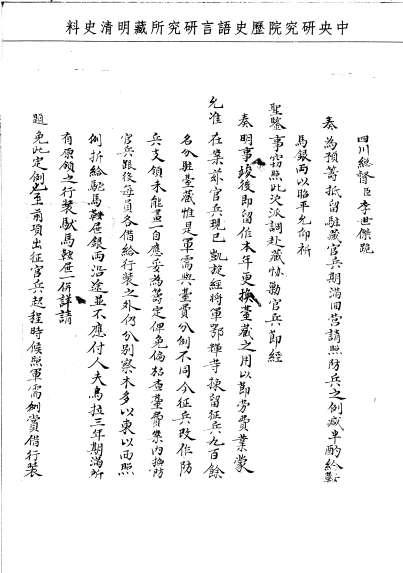 中央研究院歷史語言研究所藏明清史料
四川總督臣李世傑跪
奏為預籌抵留駐藏官兵期滿回營請照防兵之例咸單酌給鞍
馬銀兩以昭平允仰祈
聖鑒事竊照此次派調赴藏協勦官兵節經
奏明事竣後即留作本年更換臺藏之用以節勞費業蒙
允准在案茲官兵現已凱旋經將軍鄂輝等揀留征兵九百餘
名分駐臺藏惟是軍需與臺費分例不同今征兵改作防
兵支領未能畫一自應妥為籌定俾免偏枯查臺費案內換防
官兵跟役每員名借給行裝之外仍分別察木多以東以西照
例折給馱馬鞍屜銀兩沿途並不應付人夫烏拉三年期滿所
有原領之行裝馱馬鞍屜一併詳請
題免此定例也至前項出征官兵起程時候照軍需例賞借行裝